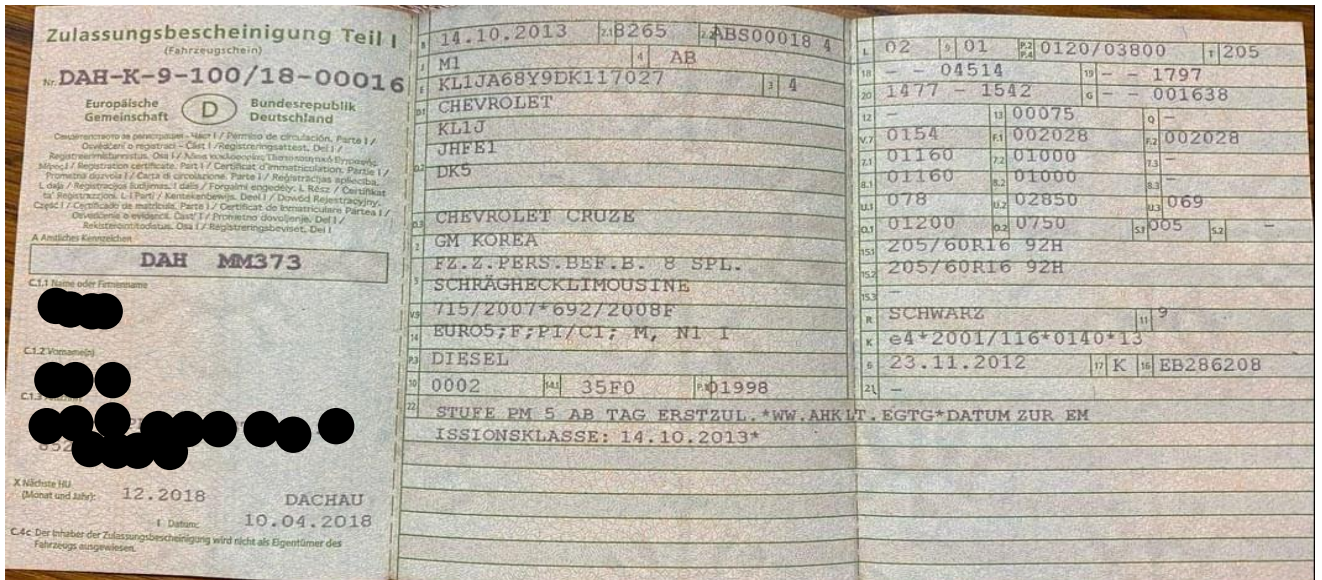 Zulassungsbescheinigung Teil I
(Fahrzeugschein)
Nr. DAH-K-9-100/18-00016
Europäische Gemeinschaft
D
Bundesrepublik Deutschland
Свидетелство за регистрация - Част I / Permiso de circulación. Parte I /
Osvědčení o registraci - Část I / Registreringsattest. Del I /
Registration certificate. Part I / Certificat d'immatriculation. Partie I /
Prometna dozvola I / Carta di circolazione. Parte I / Reģistrācijas apliecība.
I. daļa / Registracijos liudijimas. I dalis / Forgalmi engedély. I. Rész / Ċertifikat
ta' Reġistrazzjoni. L-I Parti / Kentekenbewijs. Deel I / Dowód Rejestracyjny.
Część I / Certificado de matrícula. Parte I / Certificat de înmatriculare Partea I /
Osvedčenie o evidencii. Časť I / Prometno dovoljenje. Del I /
Rekisteröintitodistus. Osa I / Registreringsbeviset. Del I
A Amtliches Kennzeichen
DAH MM373
C.1.1 Name oder Firmenname
C.1.2 Vorname(n)
C.1.3
X Nächste HU
(Monat und Jahr): 12.2018
DACHAU
I Datum: 10.04.2018
C.4c Der Inhaber der Zulassungsbescheinigung wird nicht als Eigentümer des
Fahrzeugs ausgewiesen.
B 14.10.2013 2.1 8265 2.2 ABS00018 4
J M1 4 AB
E KL1JA68Y9DK117027 3 4
D.1 CHEVROLET
KL1J
JHFE1
D.2 DK5
D.3 CHEVROLET CRUZE
2 GM KOREA
FZ.Z.PERS.BEF.B. 8 SPL.
5 SCHRÄGHECKLIMOUSINE
V.9 715/2007*692/2008F
14 EURO5;F;PI/CI; M, N1 I
P.3 DIESEL
10 0002 14.1 35F0 P.1 01998
22 STUFE PM 5 AB TAG ERSTZUL.*WW.AHK LT.EGTG*DATUM ZUR EM
ISSIONSKLASSE: 14.10.2013*
L 02 9 01 P.2 P.4 0120/03800 T 205
18 - - 04514 19 - - 1797
20 1477 - 1542 G - - 001638
12 - 13 00075 Q -
V.7 0154 F.1 002028 F.2 002028
7.1 01160 7.2 01000 7.3 -
8.1 01160 8.2 01000 8.3 -
U.1 078 U.2 02850 U.3 069
O.1 01200 O.2 0750 S.1 005 S.2 -
15.1 205/60R16 92H
15.2 205/60R16 92H
15.3 -
R SCHWARZ 11 9
K e4*2001/116*0140*13
6 23.11.2012 17 K 16 EB286208
21 -